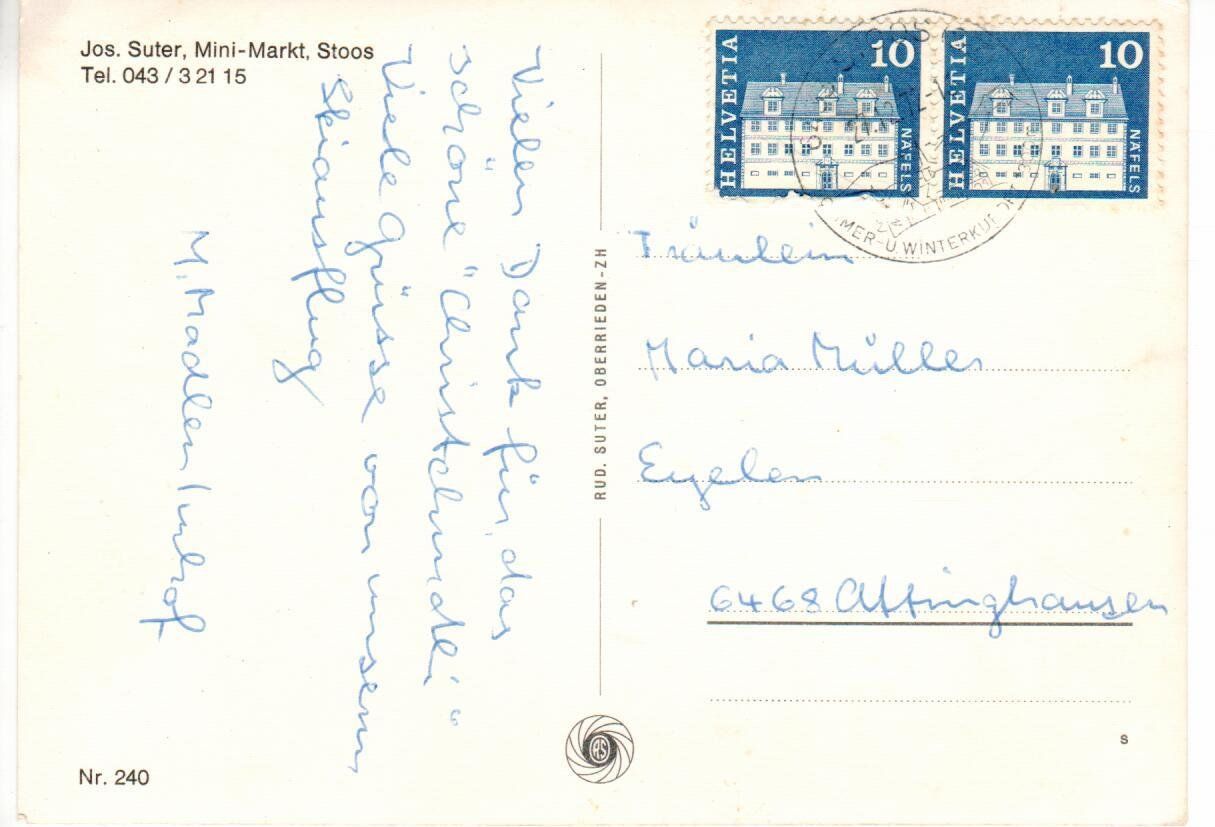 Jos. Suter, Mini-Markt, Stoos
Tel. 043 / 3 21 15
Vielen Dank für das
schöne "Christchindli"
Viele Grüsse von unserm
Skiausflug
M. Madlen Imhof
Nr. 240
RUD. SUTER, OBERRIEDEN-ZH
RS
HELVETIA 10 NÄFELS
HELVETIA 10 NÄFELS
MER-U. WINTERKUR
Fräulein
Maria Müller
Eyelen
6468 Attinghausen
s